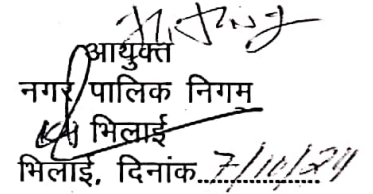 आयुक्त
नगर पालिक निगम
भिलाई
भिलाई, दिनांक..................